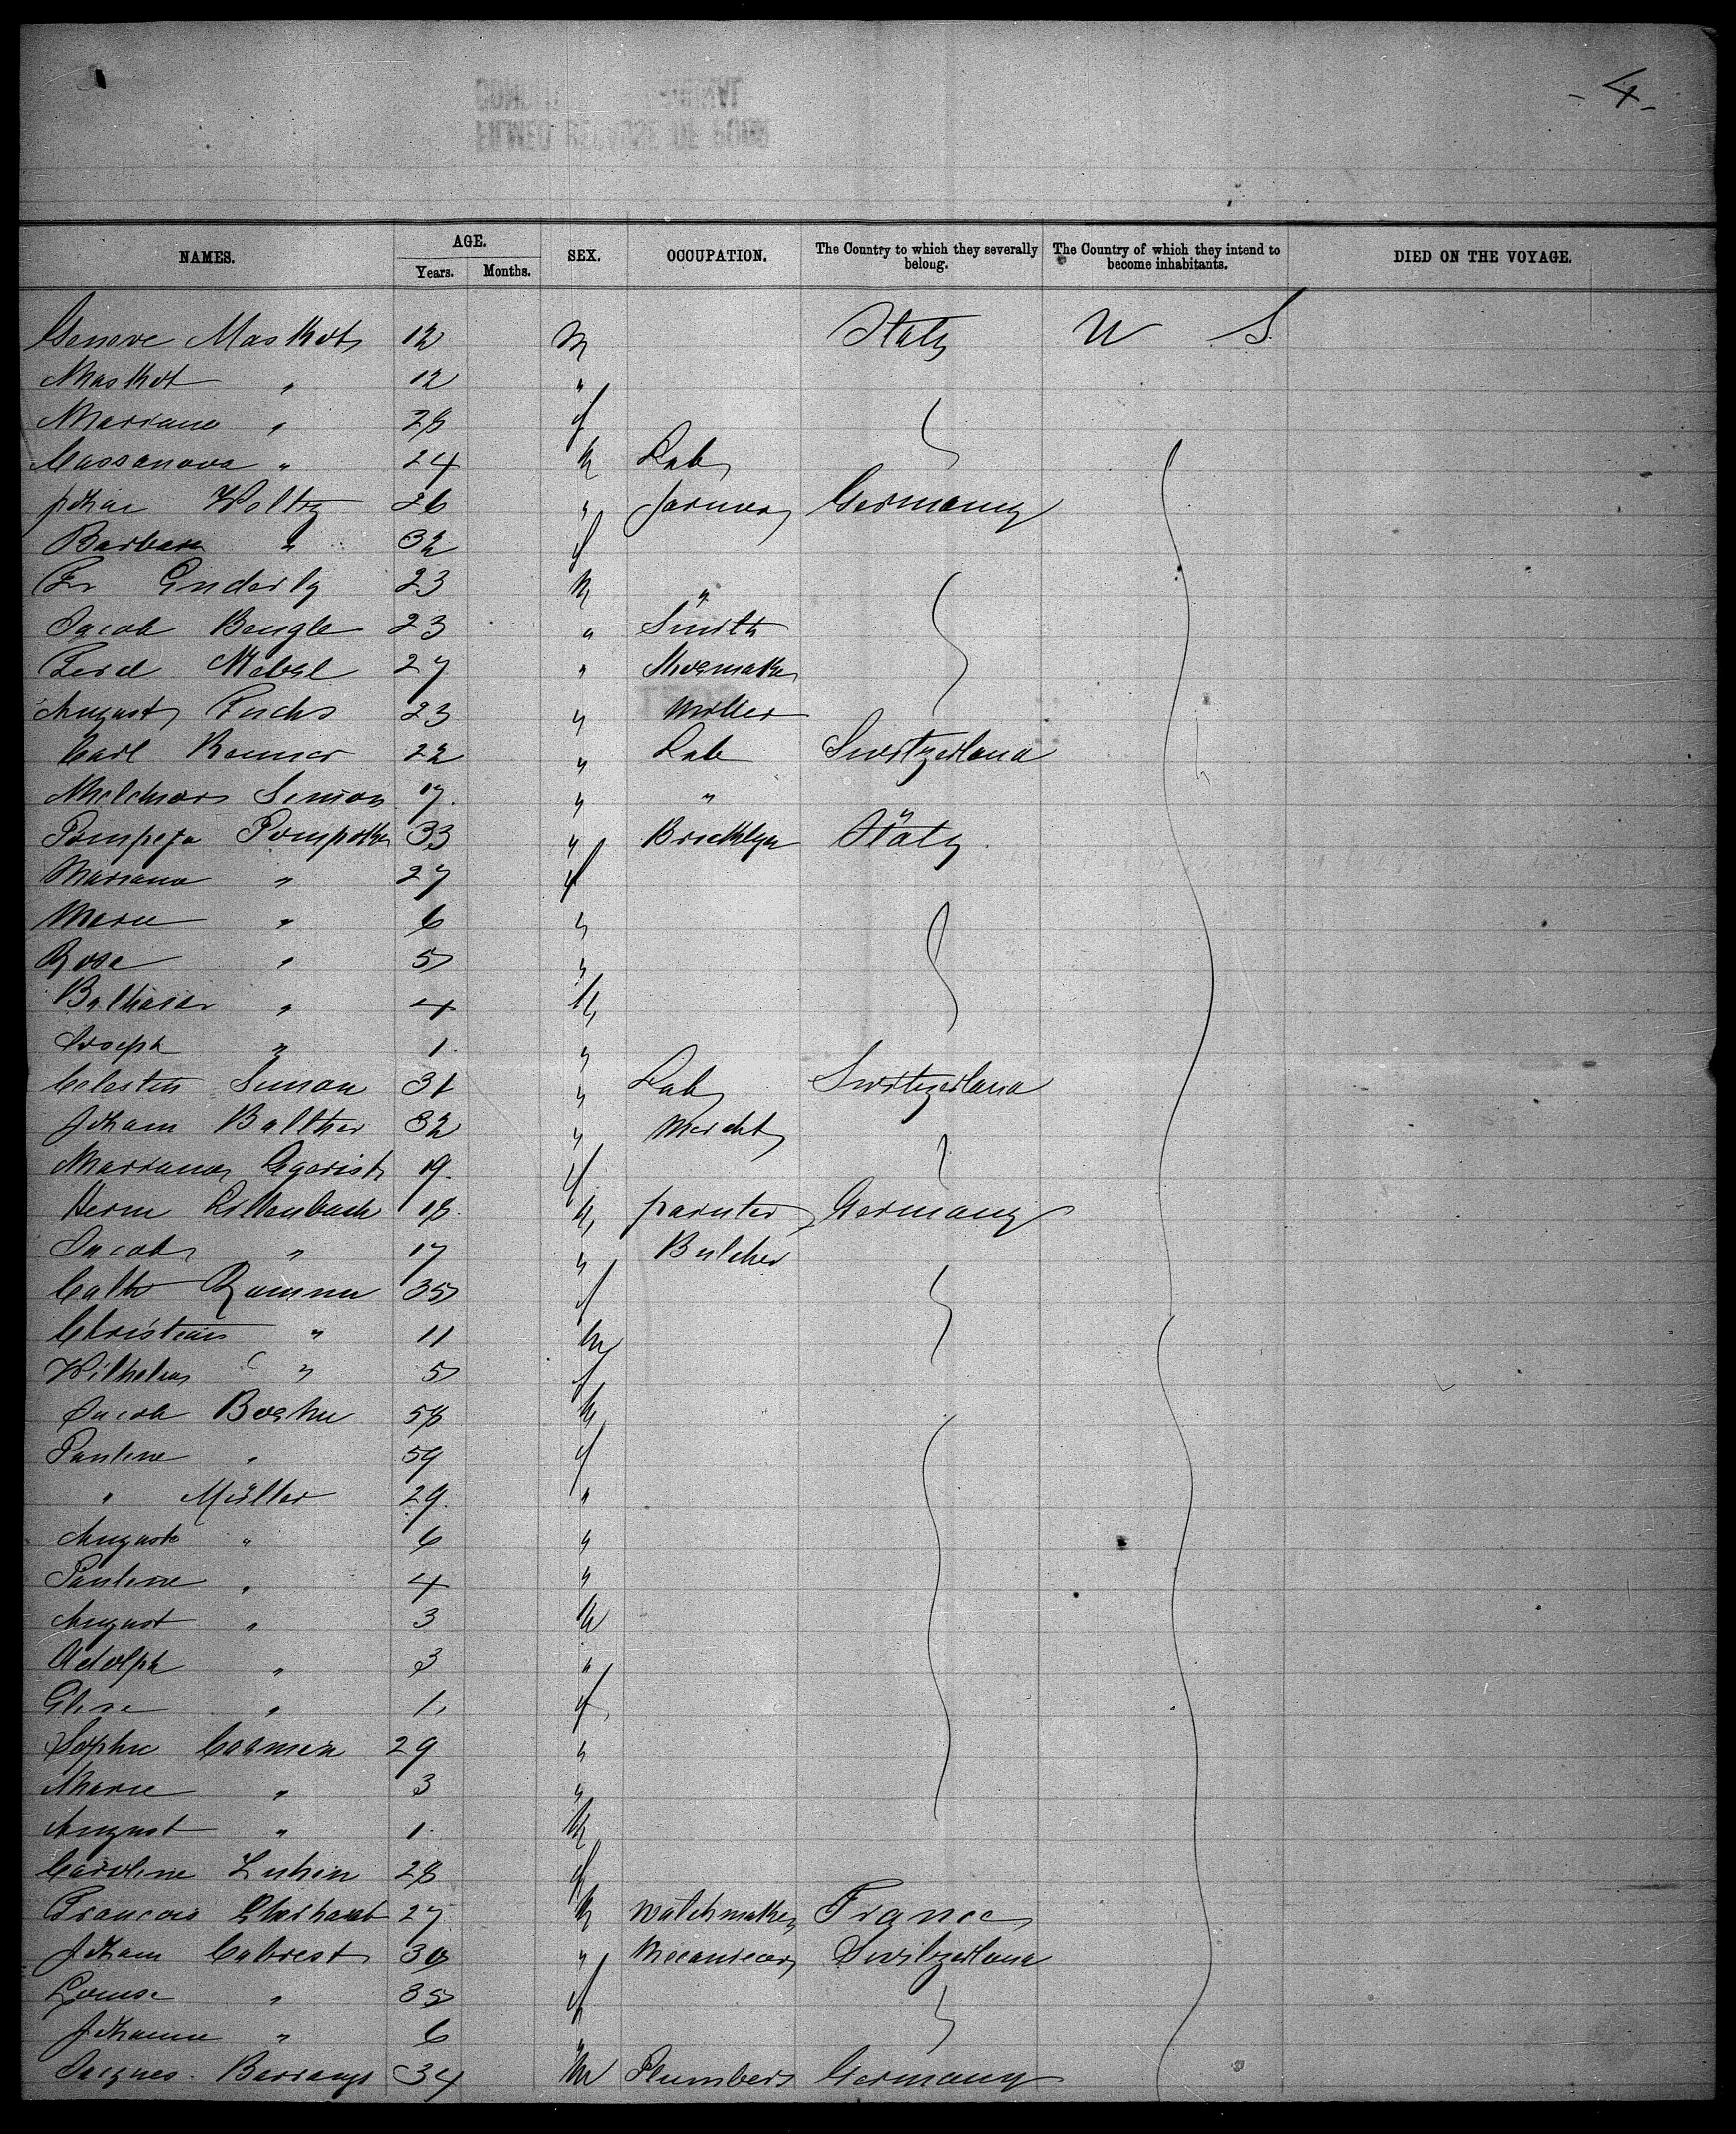 - 4 -
NAMES. AGE. Years. Months. SEX. OCCUPATION. The Country to which they severally belong. The Country of which they intend to become inhabitants. DIED ON THE VOYAGE.
Maskot 12 M Italy U S
Maskot " 12 "
Mariana " 28 f
Cassanova " 24 M Lab
Woltz 26 " farmer Germany
Barbara " 32 f
Fr Enderly 23 M "
Jacob Bengle 23 " Smith
Ferd 27 " Shoemaker
August Fuchs 23 " Miller
Carl Renner 22 " Lab Switzerland
Melchior Simon 17. " " "
Pompeja 33 " Italy
Mariana " 27 f
Marie " 6 "
Rosa " 5 "
Balthasar " 4 M
Joseph " 1. "
Celestin Simon 31 " Lab Switzerland
Johann Balther 32 " Mercht
Mariana 19. f
Herm Rittenbach 18. M painter Germany
Jacob " 17 " Butcher
35 f
Christian " 11 M
Wilhelm " 5 f
Jacob Boehm 58 M
Pauline " 59 f
" Müller 29. "
Auguste " 6 "
Pauline " 4 "
August " 3 M
Adolph " 3 "
Elise " 1. f
Sophie 29 "
Marie " 3 "
August " 1. M
Caroline 28 f
Francois 27 M Watchmaker France
Johann Cabrest 30 " Switzerland
Louise " 35 f
Johanna " 6 "
Jacques 34 M Plumbers Germany